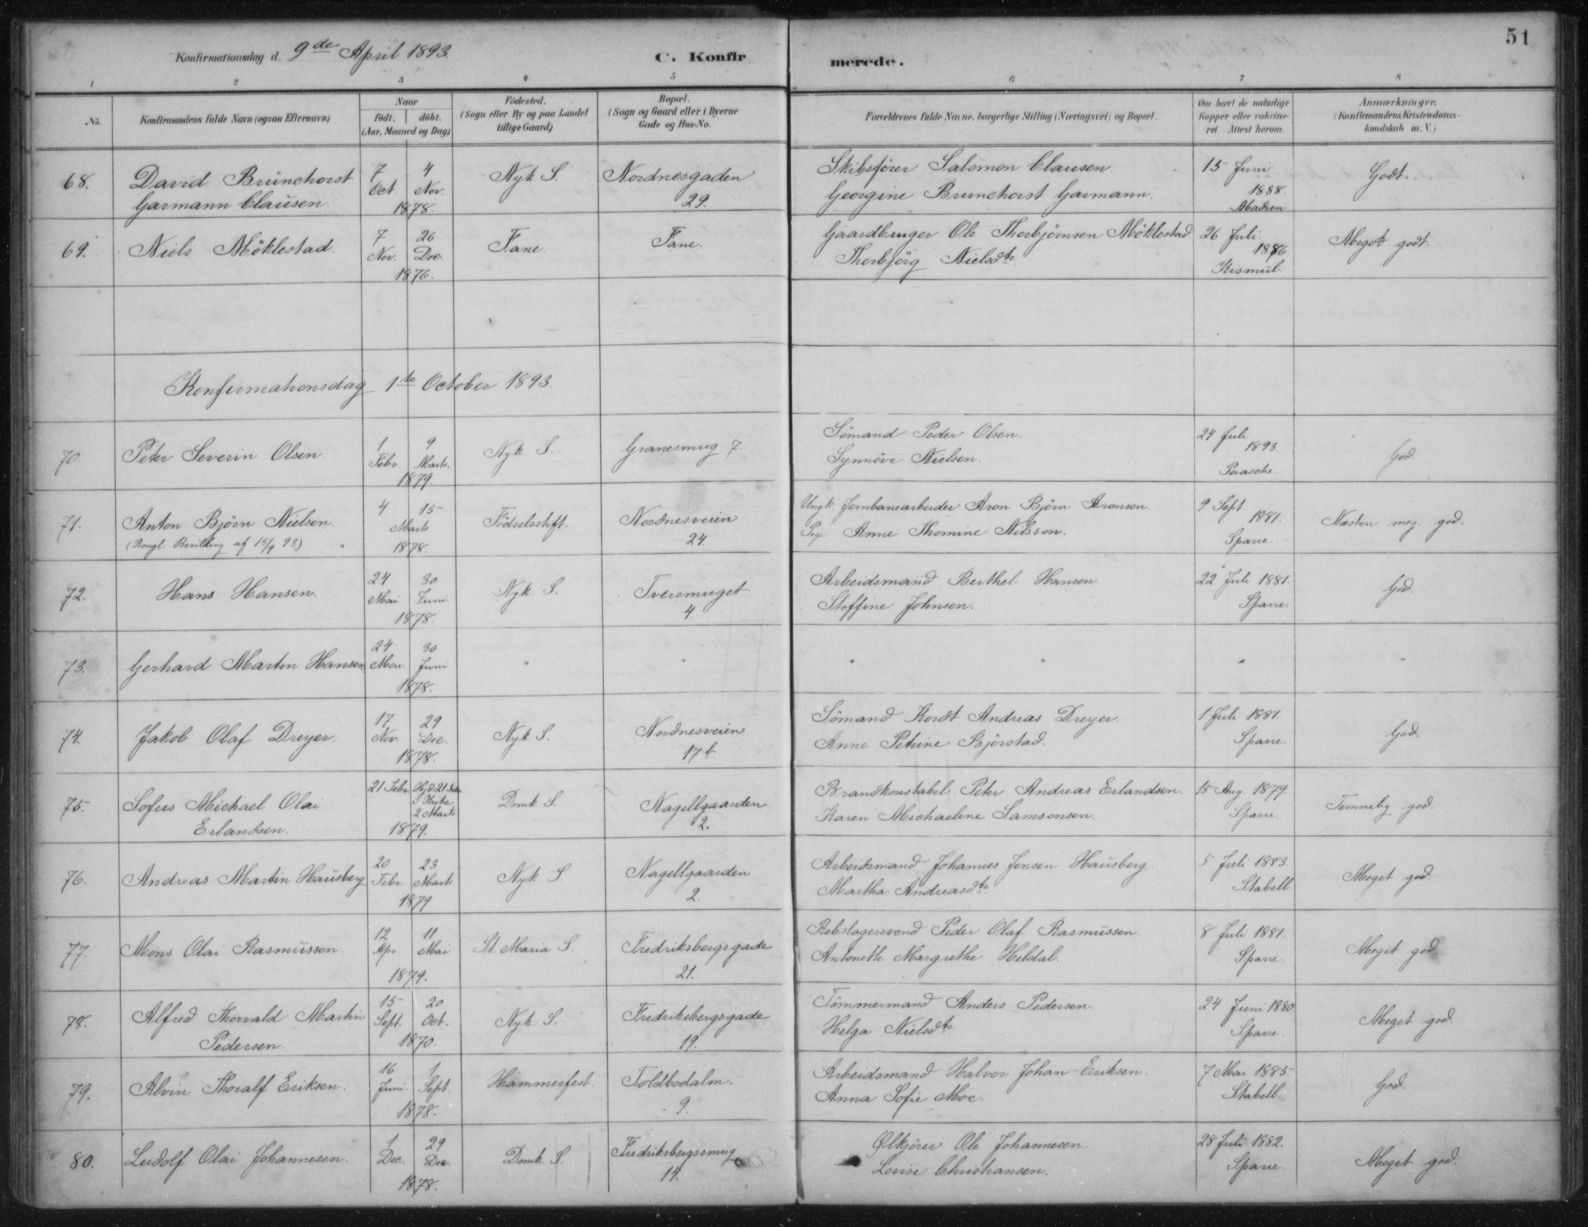 51
Konfirmationsdag d. 9de April 1893.
C. Konfirmerede.
1 2 3 4 5 6 7 8
No. Konfirmandens fulde Navn (ogsaa Efternavn)
Naar født. døbt. (Aar, Maaned og Dag)
Fødested. (Sogn eller By og paa Landet tillige Gaard)
Bopæl. (Sogn og Gaard eller i Byerne Gade og Hus-No.
Forældrenes fulde Navne, borgerlige Stilling (Næringsvei) og Bopæl.
Om havt de naturlige Kopper eller vakcineret. Attest herom.
Anmærkninger. (Konfirmandens Kristendomskundskab m. V.)
68. David Brunchorst 7 4 Nyk S. Nordnesgaden Skibsfører Salomon Clausen 15 Juni Godt.
Garmann Clausen. Oct. Nov. 29. Georgine Brunchorst Garmann. 1888.
1878. Madsen
69. Niels Møklestad 7 26 Fane. Fane. Gaardbruger Ole Thorbjørnsen Møklestad 26 Juli Meget godt.
Nov. Dec. Thorbjørg Nielsdtr. 1876
1876. Krismul
Konfirmationsdag 1te October 1893
70. Peter Severin Olsen. 1 9 Nyk S. Granesmug 7 Sømand Peder Olsen. 24 Juli God
Febr. Marts. Synnøve Nielsen. 1893
1879
71. Anton Bjørn Nielsen. 4 15 Fødselsstift. Nordnesveien Ungk. Jernbanearbeider Aron Bjørn Aronsen 9 Sept. Næsten meg. god.
(Kongl. Bevilling af 15/9 93) Marts 24. Pige Anne Thomine Nilsson. 1881.
1878. Sparre.
72. Hans Hansen. 24 30 Nyk S. Tversmuget Arbeidsmand Berthel Hansen. 22 Juli 1881. God
Mai Juni 4. Steffine Johnsen. Sparre.
1878.
73. Gerhard Martin Hansen, 24 30 " " " " " "
Mai Juni
1878.
74. Jakob Olaf Dreyer. 17 29 Nyk S. Nordnesveien Sømand Kordt Andreas Dreyer. 1 Juli 1881. God.
Nov. Dec. 17b Anne Petrine Bjørstad. Sparre.
1878.
75. Sofus Michael Olai 21 Febr. Hjd. 21 Febr. Domk S. Nagellgaarden Brandkonstabel Peter Andreas Erlandsen. 15 Aug 1879 Temmelig god.
Erlandsen. i Kirke 2 Marts 2. Karen Michaeline Samsonsen. Sparre.
1879.
76. Andreas Martin Hausberg 20 23 Nyk. S Nagellgaarden Arbeidsmand Johannes Jensen Hausberg. 5 Juli 1883. Meget god
Febr. Marts 2. Martha Andreasdtr. Stabell
1879
77. Mons Olai Rasmussen. 12 11 St Maria S Fredriksbergsgade Rebslagersvend Peder Olaf Rasmussen. 8 Juli 1881. Meget god.
Apr. Mai 21. Antonette Margrethe Heldal. Sparre.
1879.
78. Alfred Thorvald Martin 15 20 Nyk. S. Fredriksbergsgade Tømmermand Anders Pedersen. 24 Juni 1880 Meget god.
Pedersen. Sept. Oct. 19. Helga Nielsdtr. Sparre.
1870.
79. Alvin Thoralf Eriksen. 16 1 Hammerfest. Toldbodalm. Arbeidsmand Halvor Johan Eriksen. 7 Mai 1885 God.
Juni Sept. 9. Anna Sofie Moe. Stabell.
1878.
80. Ludolf Olai Johannesen. 1 29 Domk. S. Fredriksbergssmug Ølkjører Ole Johannesen. 28 Juli 1882. Meget god.
Dec. Dec 14. Lovise Christiansen. Sparre
1878.